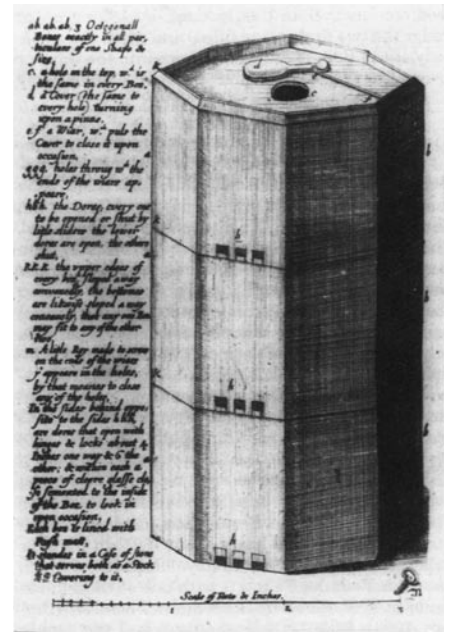 ab ab ab. 3 Octogonall
Boxes exactly in all par,
ticulars of one Shape &
size,
c. a hole in the top, wch. is
the same in every Box.
d a Cover (the same to
every hole) turning
upon a pinne.
e.f a Wiar, wch puls the
Cover to close it upon
occasion.
ggg. holes throug wch the
ends of the wiars ap,
peare.
hhh the Dores, every one
to be opened or shut by
litle sliders the lower
dores are open, the others
shut,
the upper edges of
every box sloped away
are likwise sloped a way
that any one Box
may fit to any of the other
m. A litle Key made to serve
on the ends of the wiars
yt appeare in the holes,
by that meanes to close
any of the holes.
In the sides behind oppo,
site to the sides hhh,
are dores that open with
hinges & locks about 4
Inches one way & 6 the
other; & within each a
peece of cleere glasse
to the inside
of the Box to look in
upon occasion.
Each box is lined with
matt.
It standes in a Case of
that serves both as a Stock
& Covering to it.
d
c
e
f
h
h
h
b
b
b
m
Scale of Foote & Inches.
1
2
3